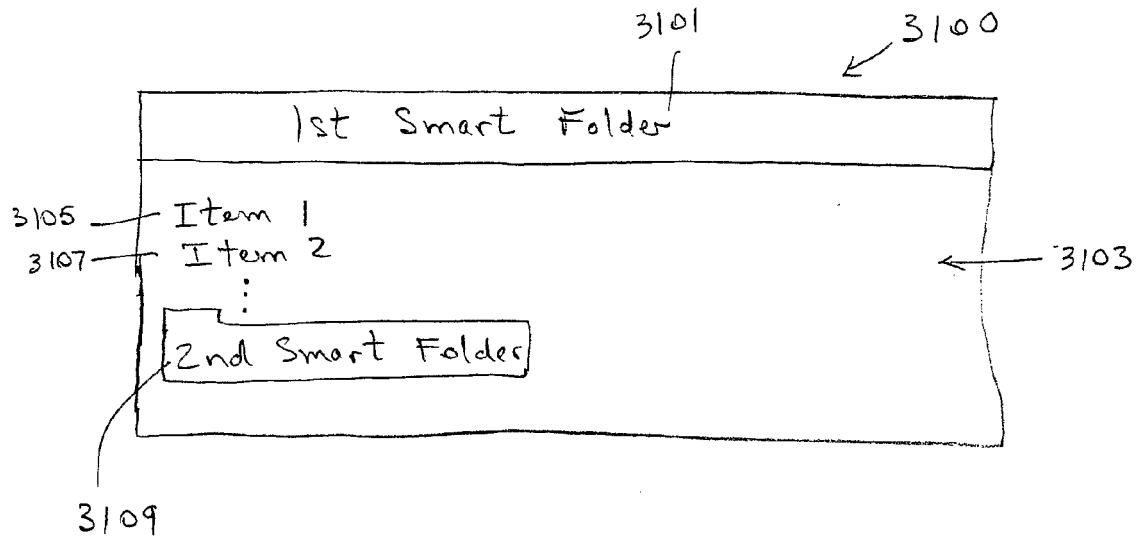 3101
3100
1st Smart Folder
3105 Item 1
3107 Item 2
3103
2nd Smart Folder
3109